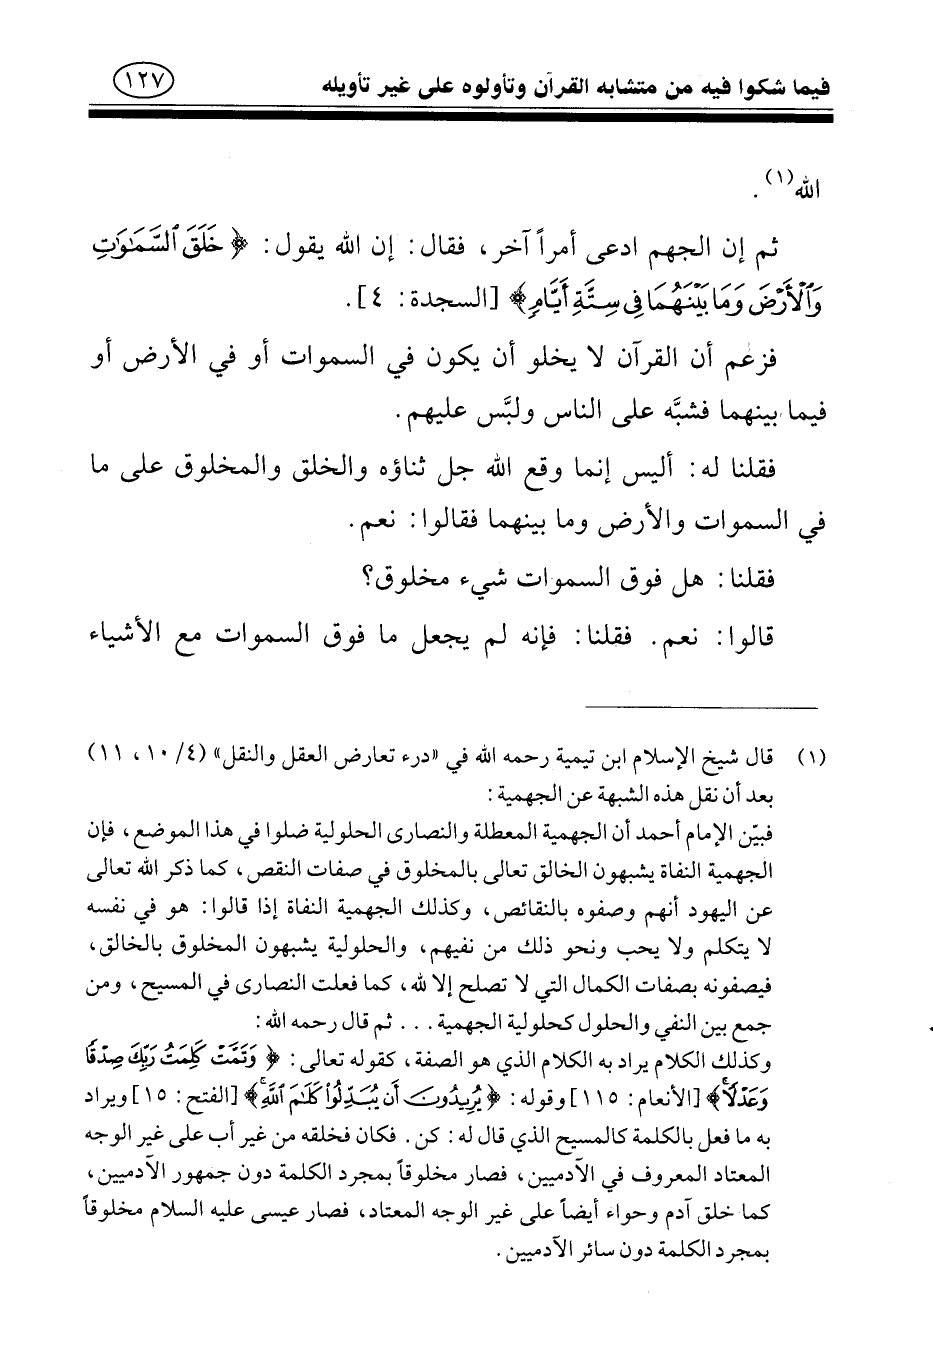 فيما شكوا فيه من متشابه القرآن وتأولوه على غير تأويله ١٢٧
الله(١).
ثم إن الجهم ادعى أمراً آخر، فقال: إن الله يقول: ﴿خَلَقَ ٱلسَّمَٰوَٰتِ
وَٱلْأَرْضَ وَمَا بَيْنَهُمَا فِى سِتَّةِ أَيَّامٍ﴾ [السجدة: ٤].
فزعم أن القرآن لا يخلو أن يكون في السموات أو في الأرض أو
فيما بينهما فشبَّه على الناس ولبَّس عليهم.
فقلنا له: أليس إنما وقع الله جل ثناؤه والخلق والمخلوق على ما
في السموات والأرض وما بينهما فقالوا: نعم.
فقلنا: هل فوق السموات شيء مخلوق؟
قالوا: نعم. فقلنا: فإنه لم يجعل ما فوق السموات مع الأشياء
(١) قال شيخ الإسلام ابن تيمية رحمه الله في «درء تعارض العقل والنقل» (٤/ ١٠، ١١)
بعد أن نقل هذه الشبهة عن الجهمية:
فبيّن الإمام أحمد أن الجهمية المعطلة والنصارى الحلولية ضلوا في هذا الموضع، فإن
الجهمية النفاة يشبهون الخالق تعالى بالمخلوق في صفات النقص، كما ذكر الله تعالى
عن اليهود أنهم وصفوه بالنقائص، وكذلك الجهمية النفاة إذا قالوا: هو في نفسه
لا يتكلم ولا يحب ونحو ذلك من نفيهم، والحلولية يشبهون المخلوق بالخالق،
فيصفونه بصفات الكمال التي لا تصلح إلا لله، كما فعلت النصارى في المسيح، ومن
جمع بين النفي والحلول كحلولية الجهمية . . . ثم قال رحمه الله:
وكذلك الكلام يراد به الكلام الذي هو الصفة، كقوله تعالى: ﴿وَتَمَّتْ كَلِمَتُ رَبِّكَ صِدْقًا
وَعَدْلًا﴾ [الأنعام: ١١٥] وقوله: ﴿يُرِيدُونَ أَن يُبَدِّلُوا۟ كَلَٰمَ ٱللَّهِ﴾ [الفتح: ١٥] ويراد
به ما فعل بالكلمة كالمسيح الذي قال له: كن. فكان فخلقه من غير أب على غير الوجه
المعتاد المعروف في الآدميين، فصار مخلوقاً بمجرد الكلمة دون جمهور الآدميين،
كما خلق آدم وحواء أيضاً على غير الوجه المعتاد، فصار عيسى عليه السلام مخلوقاً
بمجرد الكلمة دون سائر الآدميين.